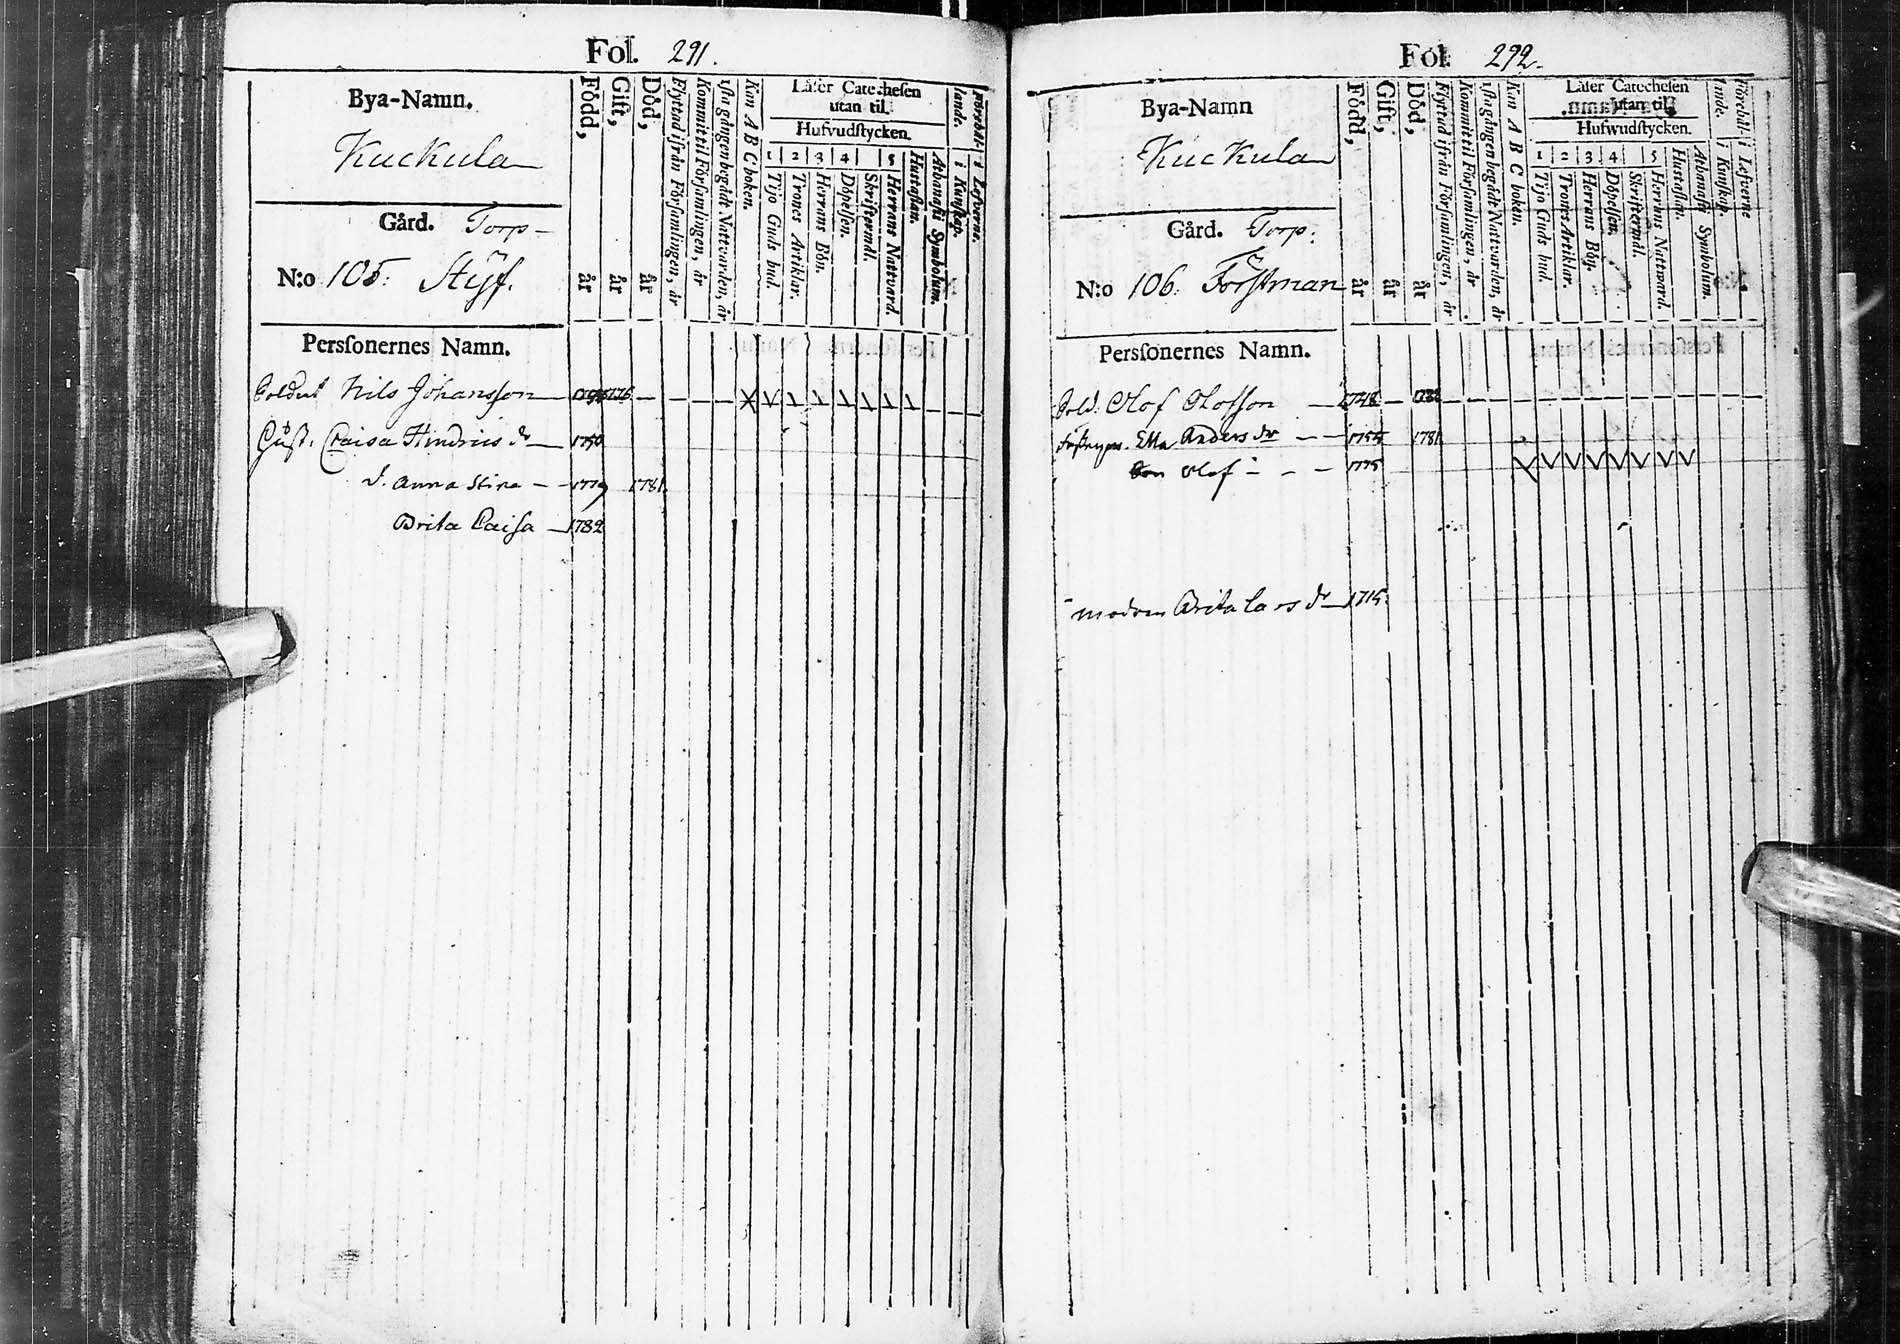 Fol. 291.
Bya-Namn.
Kuckula
Gård. Torp
N:o 105. Styf.
Personernes Namn.
Född, år
Gift, år
Död, år
Flyttad ifrån Församlingen, år
Kommit til Församlingen, år
1sta gången begådt Nattvarden, år
Kan A B C boken.
Läser Catechesen
utan til.
Hufvudstycken.
1 2 3 4 5
Tijo Guds bud.
Trones Artiklar.
Herrans Bön.
Döpelsen.
Skriftermål.
Herrans Nattvard.
Hustaflan.
Athanasii Symbolum.
Förehållande.
i Kunskap.
i Lefverne.
Soldat Nils Johansson
Hust. Caisa Hindrics dr 1750
d. Anna Stina 1779 1781.
Brita Caisa 1782
Fol. 292.
Bya-Namn
Kuckula
Gård. Torp.
N:o 106. Förstman
Personernes Namn.
Född, år
Gift, år
Död, år
Flyttad ifrån Församlingen, år
Kommit til Församlingen, år
1sta gången begådt Nattvarden, år
Kan A B C boken.
Läser Catechesen
utan til.
Hufwudstycken.
1 2 3 4 5
Tijo Guds bud.
Trones Artiklar.
Herrans Bön.
Döpelsen.
Skriftermål.
Herrans Nattvard.
Hustaflan.
Athanasii Symbolum.
Förehållande.
i Kunskap.
i Lefverne
Sold. Olof Olofson 1748
Anders dr 1755 1781
Olof 1775
modren Brita Lars dr 1715